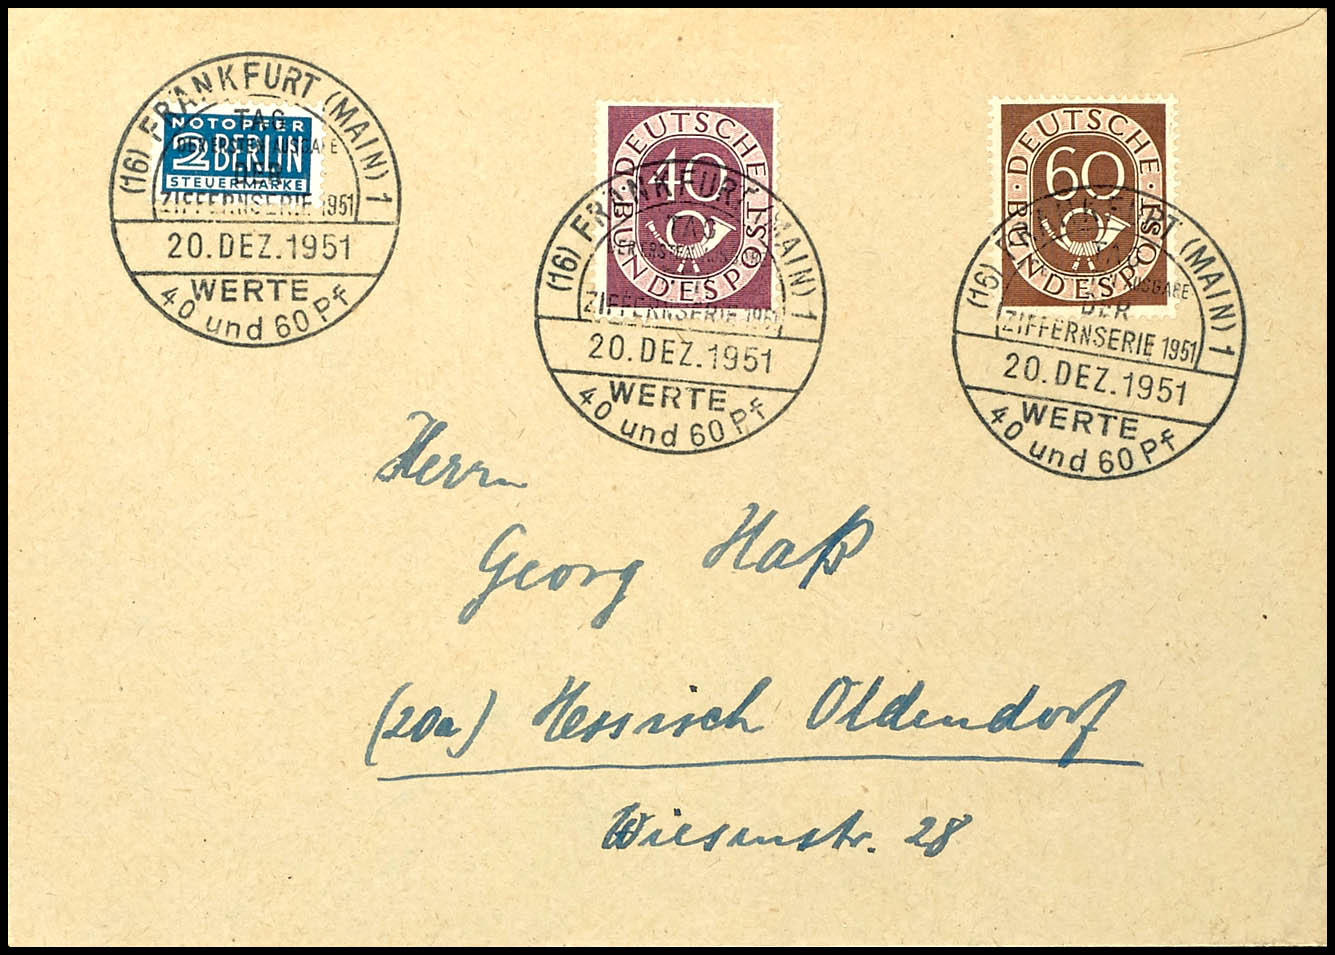 (16) FRANKFURT (MAIN) 1
TAG
DER ERSTEN AUSGABE
DER
ZIFFERNSERIE 1951
20. DEZ. 1951
WERTE
40 und 60 Pf
NOTOPFER
2 BERLIN
STEUERMARKE
DEUTSCHE
BUNDESPOST
40
(16) FRANKFURT (MAIN) 1
TAG
DER ERSTEN AUSGABE
ZIFFERNSERIE 1951
20. DEZ. 1951
WERTE
40 und 60 Pf
DEUTSCHE
BUNDESPOST
60
(16) FRANKFURT (MAIN) 1
TAG
AUSGABE
DER
ZIFFERNSERIE 1951
20. DEZ. 1951
WERTE
40 und 60 Pf
Herrn
Georg Haß
(20a) Hessisch Oldendorf
Wiesenstr. 28